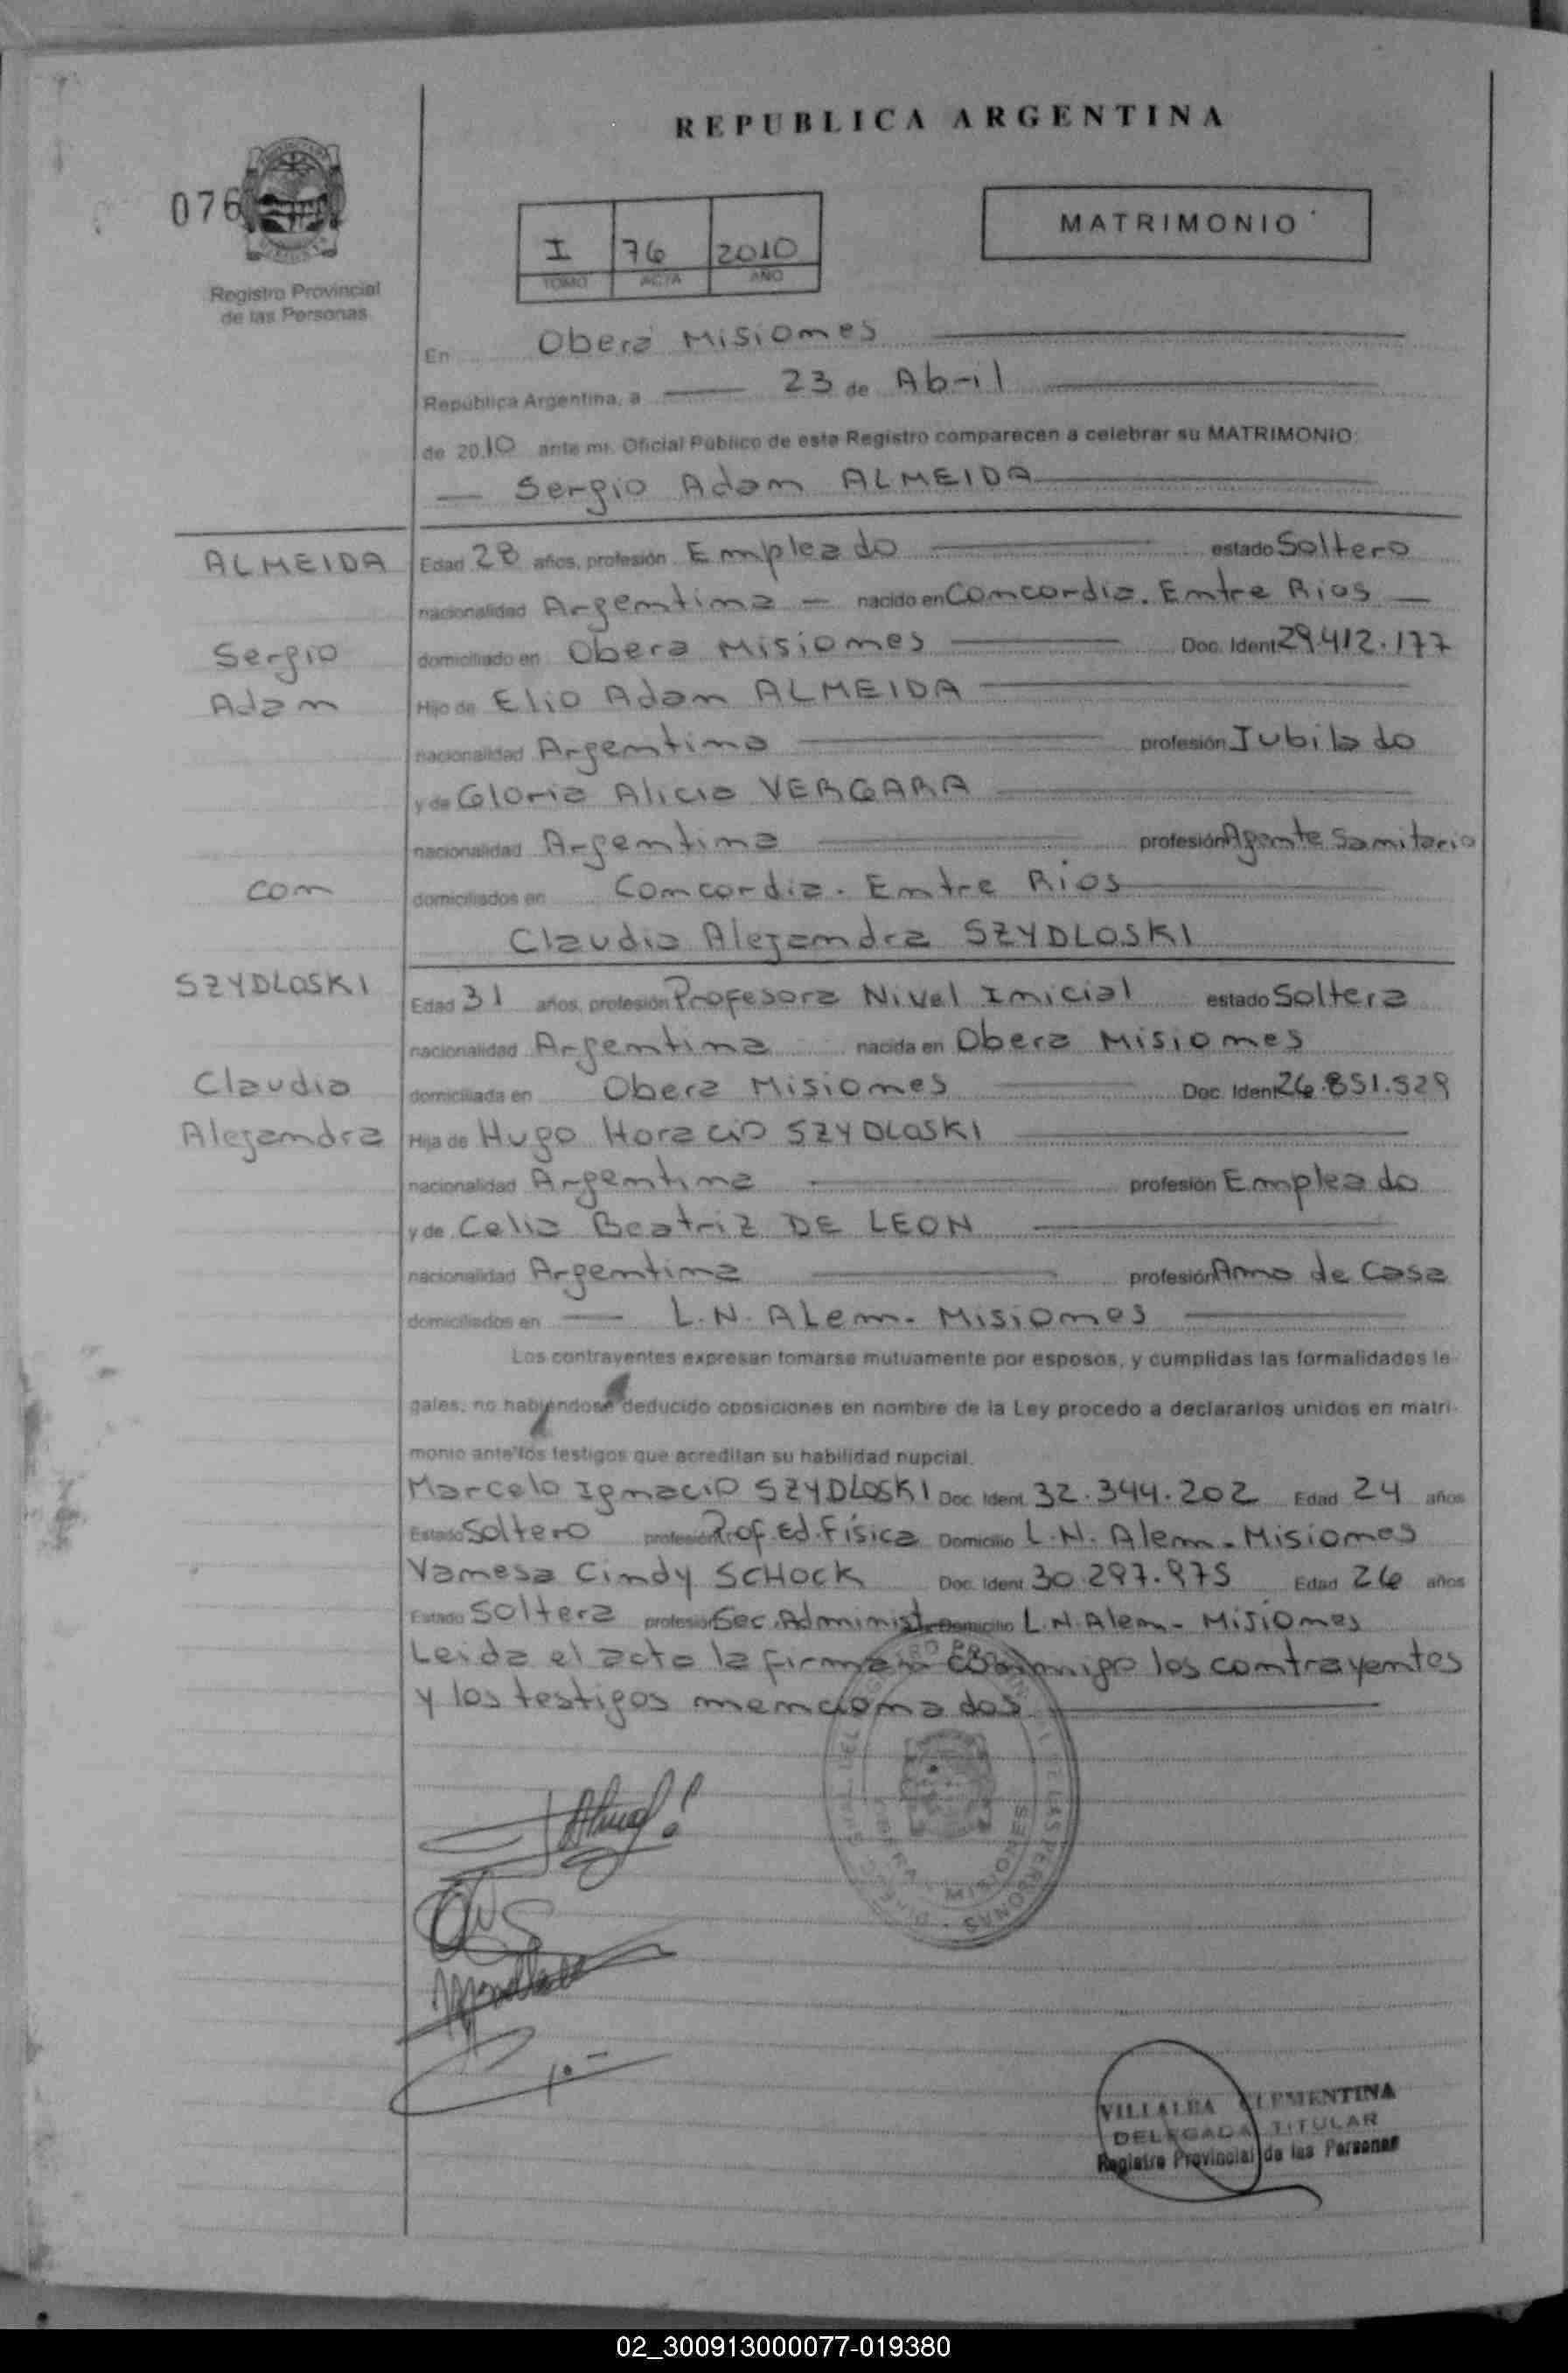 REPUBLICA ARGENTINA
076
MATRIMONIO
I 76 2010
TOMO ACTA AÑO
Registro Provincial
de las Personas
En Oberá Misiones
República Argentina, a 23 de Abril
de 2010 ante mí, Oficial Público de este Registro comparecen a celebrar su MATRIMONIO:
Sergio Adan ALMEIDA
ALMEIDA
Edad 28 años, profesión Empleado estado Soltero
nacionalidad Argentina nacido en Concordia. Entre Rios
Sergio
domiciliado en Obera Misiones Doc. Ident 29.412.177
Adan
Hijo de Elio Adan ALMEIDA
nacionalidad Argentina profesión Jubilado
y de Gloria Alicia VERGARA
nacionalidad Argentina profesión Agente Sanitario
con
domiciliados en Concordia. Entre Rios
Claudia Alejandra SZYDLOSKI
SZYDLOSKI
Edad 31 años, profesión Profesora Nivel Inicial estado Soltera
nacionalidad Argentina nacida en Obera Misiones
Claudia
domiciliada en Obera Misiones Doc. Ident 26.851.529
Alejandra
Hija de Hugo Horacio SZYDLOSKI
nacionalidad Argentina profesión Empleado
y de Celia Beatriz DE LEON
nacionalidad Argentina profesión Ama de Casa
domiciliados en L.N. ALem. Misiones
Los contrayentes expresan tomarse mutuamente por esposos, y cumplidas las formalidades le-
gales, no habiéndose deducido oposiciones en nombre de la Ley procedo a declararlos unidos en matri-
monio ante los testigos que acreditan su habilidad nupcial.
Marcelo Ignacio SZYDLOSKI Doc. Ident. 32.344.202 Edad 24 años
Estado Soltero profesión Prof. Ed. Física Domicilio L.N. Alem. Misiones
Vanesa Cindy SCHOCK Doc. Ident. 30.297.975 Edad 26 años
Estado Soltera profesión Sec. Administ. Domicilio L.N. Alem - Misiones
Leida el acta la firman conmigo los contrayentes
y los testigos mencionados
OBERA - MISIONES
VILLALBA CLEMENTINA
DELEGADA TITULAR
Registro Provincial de las Personas
02_300913000077-019380